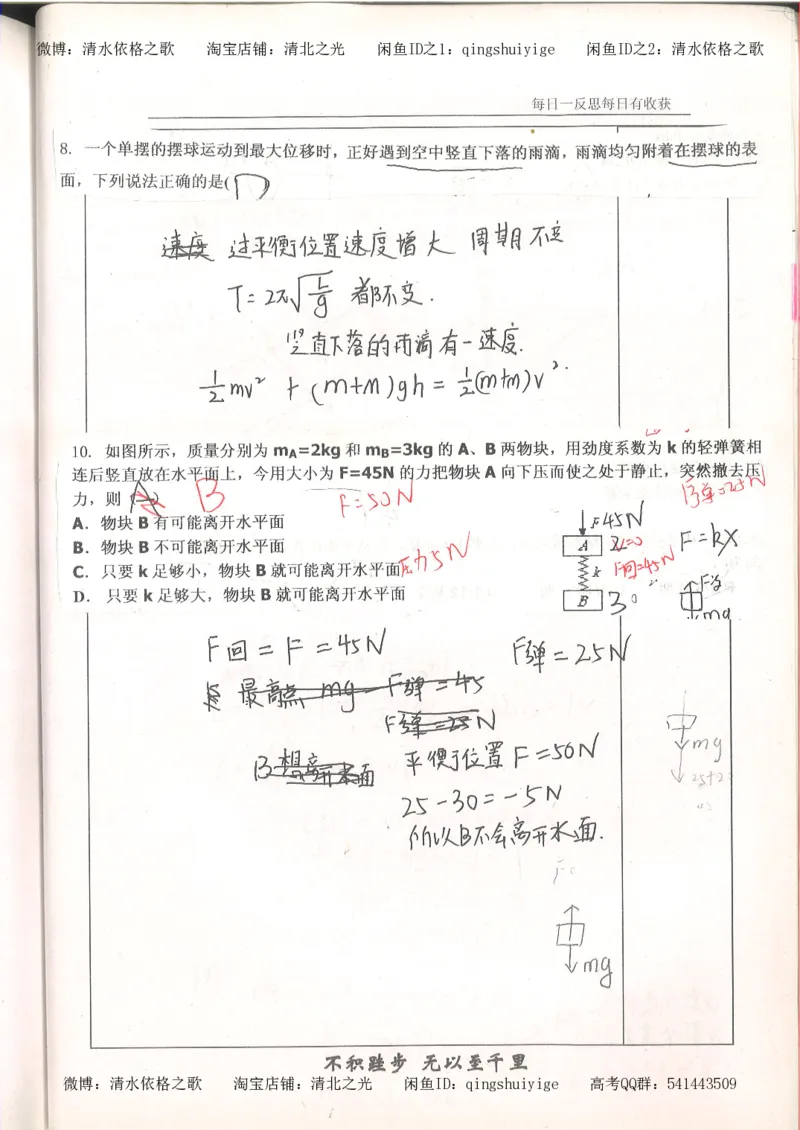 微博：清水依格之歌 淘宝店铺：清北之光 闲鱼ID之1：qingshuiyige 闲鱼ID之2：清水依格之歌
每日一反思每日有收获
8. 一个单摆的摆球运动到最大位移时，正好遇到空中竖直下落的雨滴，雨滴均匀附着在摆球的表
面，下列说法正确的是( )
速度 过平衡位置速度增大 周期不变
T=2π√(L/g) 都不变.
竖直下落的雨滴有一速度.
1/2 mv² + (m+m)gh = 1/2 (m+m)v².
10. 如图所示，质量分别为 mA=2kg 和 mB=3kg 的 A、B 两物块，用劲度系数为 k 的轻弹簧相
连后竖直放在水平面上，今用大小为 F=45N 的力把物块 A 向下压而使之处于静止，突然撤去压
力，则( )
B
F=50N
F弹=25N
A. 物块 B 有可能离开水平面
B. 物块 B 不可能离开水平面
C. 只要 k 足够小，物块 B 就可能离开水平面
压力5N
D. 只要 k 足够大，物块 B 就可能离开水平面
F45N
A
k
B 3
F回=45N
F=kx
F弹
mg
F回=F=45N F弹=25N
最高点 mg F弹=45
F弹=25N
B想离开水面
平衡位置F=50N
25-30=-5N
所以B不会离开水面.
mg
mg
不积跬步 无以至千里
微博：清水依格之歌 淘宝店铺：清北之光 闲鱼ID：qingshuiyige 高考QQ群：541443509